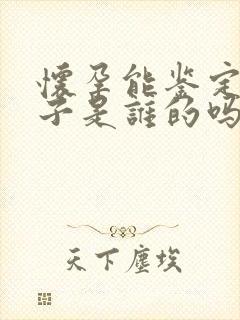 懷孕能鉴定
子是誰的吗
天下塵埃